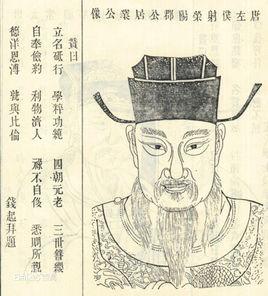 唐左僕射榮陽郡公居業公像
贊曰
立名砥行 學粹功純 四朝元老 三世簪纓
自奉儉約 利物濟人 祿不自侈 悉周所親
德洋恩溥 孰與比倫
錢起拜題